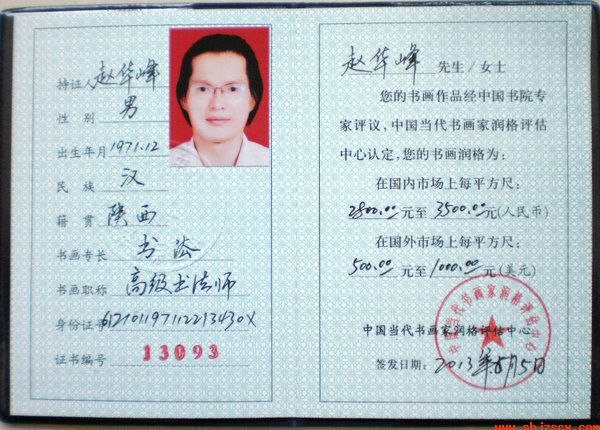 持证人 赵华峰
性别 男
出生年月 1971.12
民族 汉
籍贯 陕西
书画专长 书法
书画职称 高级书法师
身份证号 612101197112213430X
证书编号 13093
赵华峰 先生/女士
您的书画作品经中国书院专
家评议,中国当代书画家润格评估
中心认定,您的书画润格为:
在国内市场上每平方尺:
2800.00元至3500.00元(人民币)
在国外市场上每平方尺:
500.00元至1000.00元(美元)
中国当代书画家润格评估中心
中国当代书画家润格评估中心
签发日期: 2013年5月5日